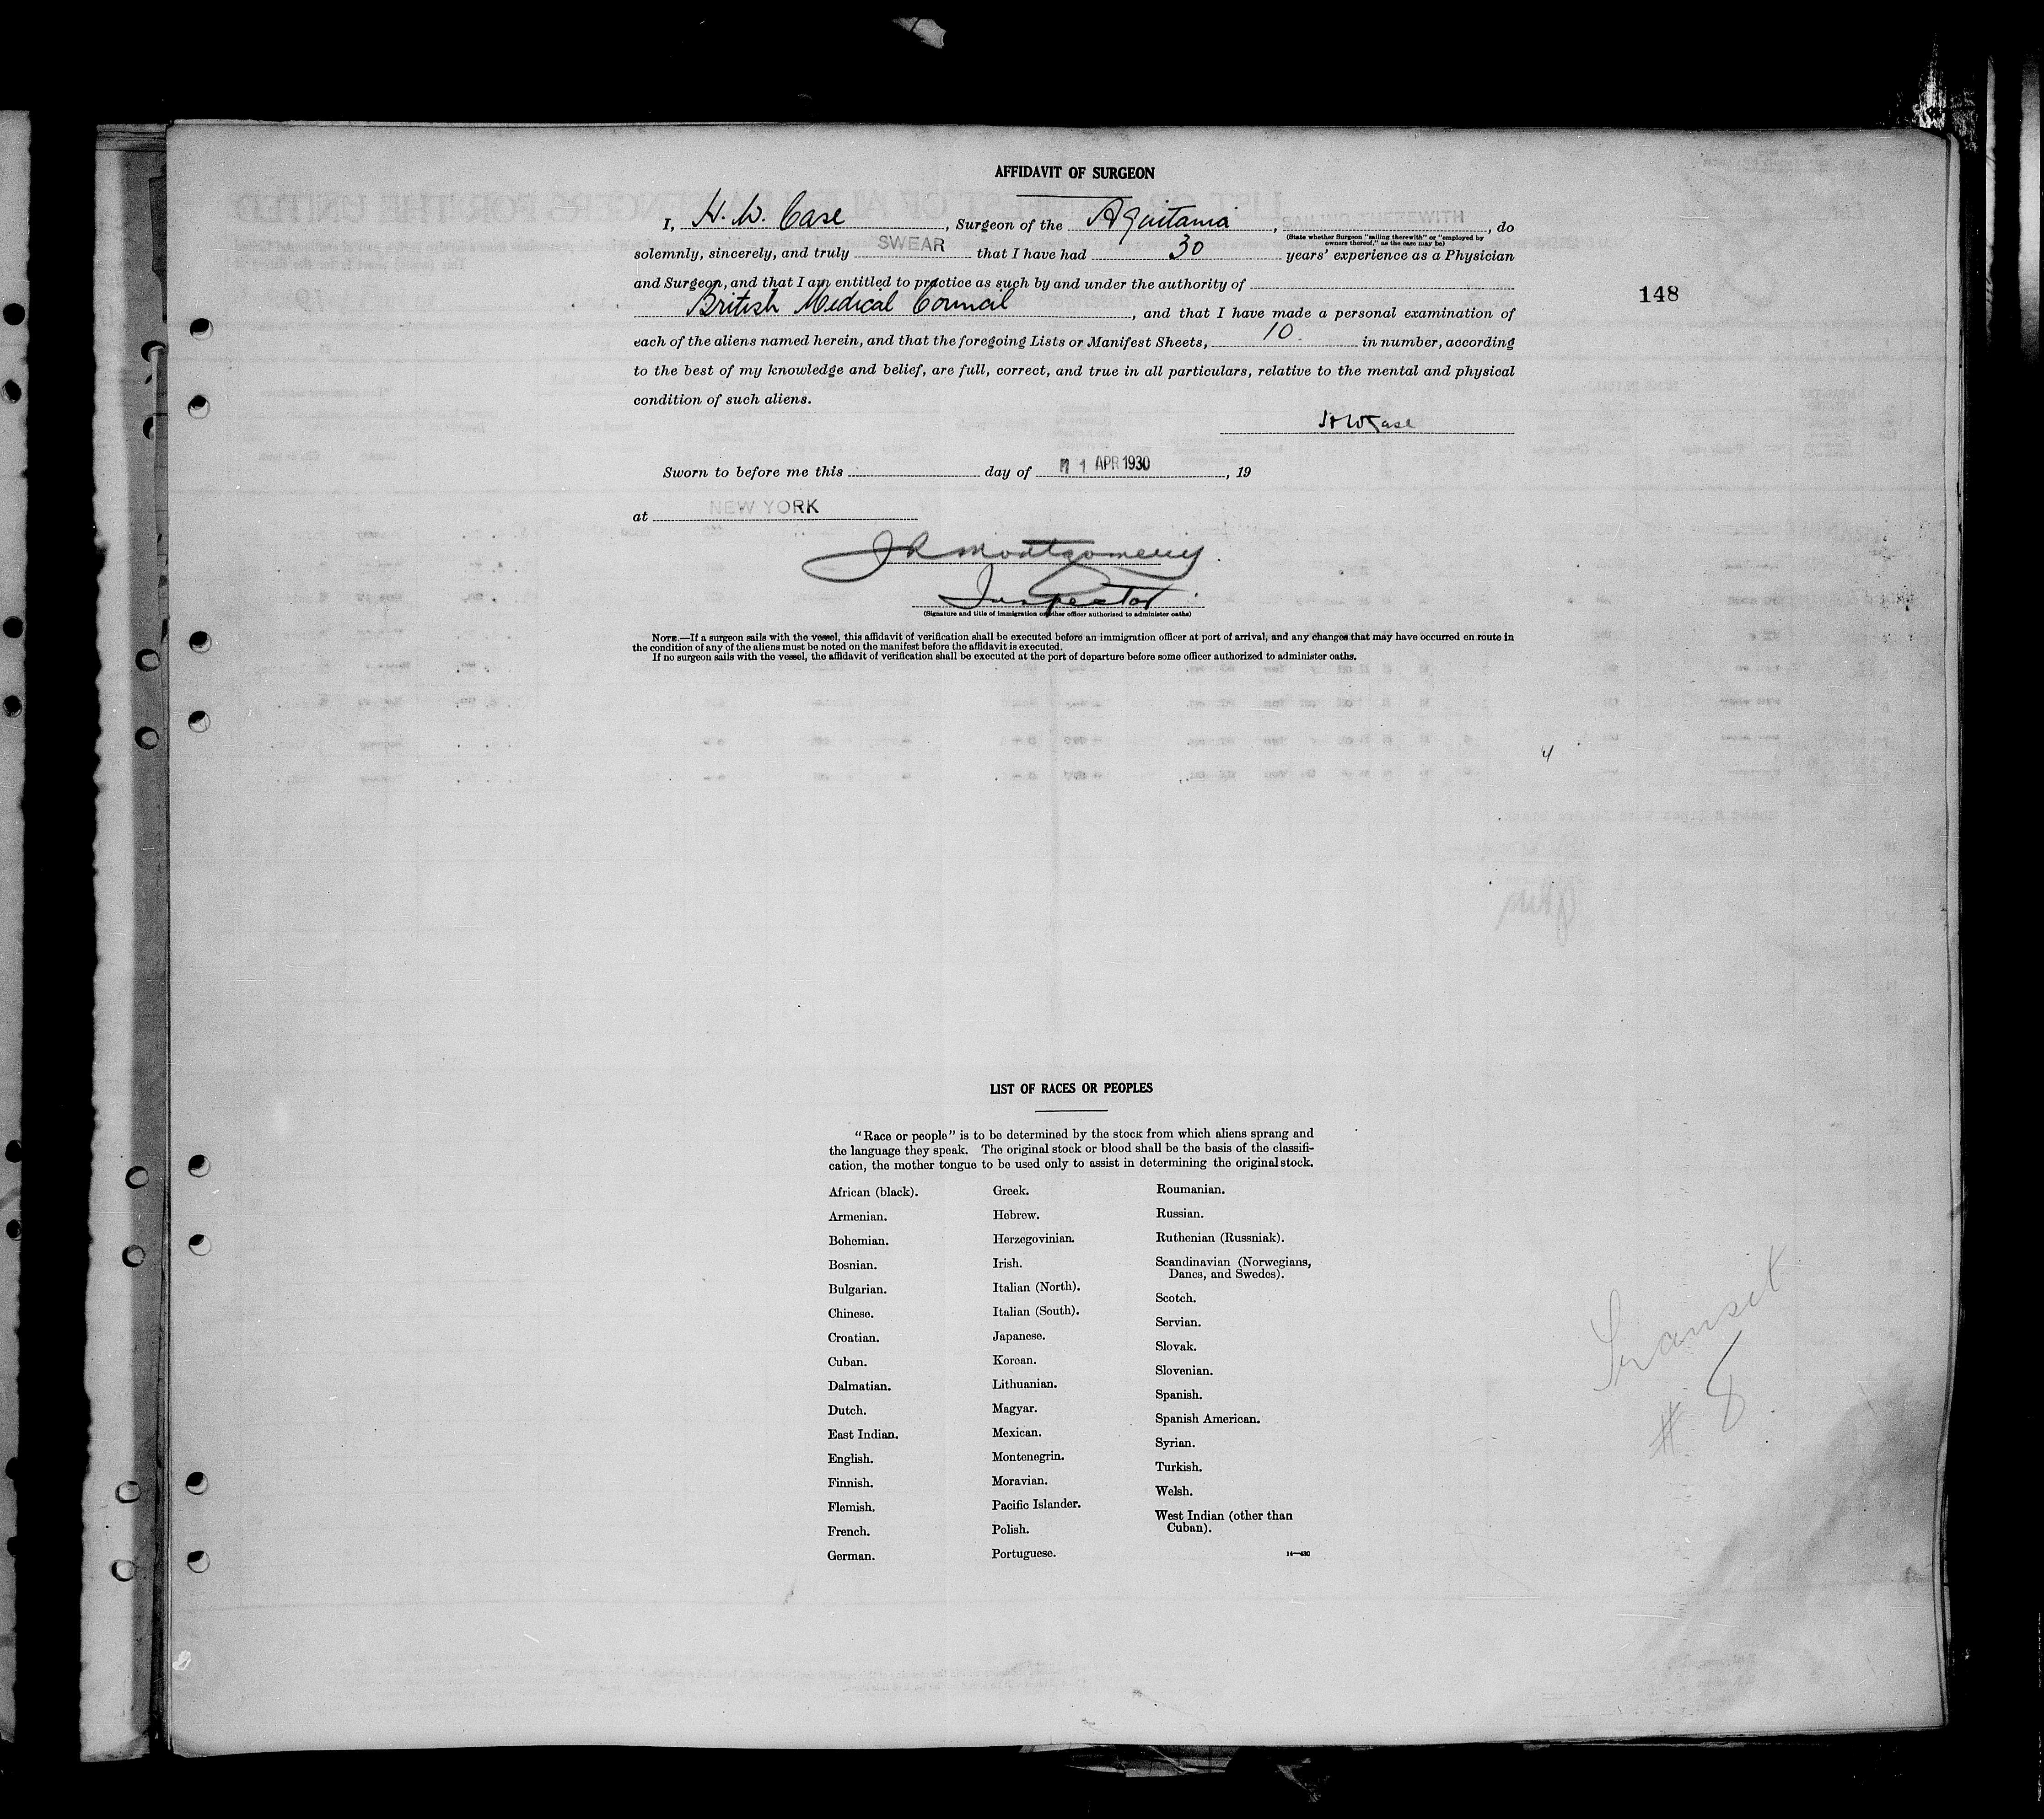 AFFIDAVIT OF SURGEON
I, H. W. Case, Surgeon of the Aquitania, SAILING THEREWITH, do
(State whether Surgeon "sailing therewith" or "employed by
owners thereof," as the case may be)
solemnly, sincerely, and truly SWEAR that I have had 30 years' experience as a Physician
and Surgeon, and that I am entitled to practice as such by and under the authority of
British Medical Council, and that I have made a personal examination of
148
each of the aliens named herein, and that the foregoing Lists or Manifest Sheets, 10. in number, according
to the best of my knowledge and belief, are full, correct, and true in all particulars, relative to the mental and physical
condition of such aliens.
HW Case
Sworn to before me this day of 1 APR 1930, 19
at NEW YORK
J R Montgomery.
Inspector
(Signature and title of immigration or other officer authorized to administer oaths)
NOTE.—If a surgeon sails with the vessel, this affidavit of verification shall be executed before an immigration officer at port of arrival, and any changes that may have occurred en route in
the condition of any of the aliens must be noted on the manifest before the affidavit is executed.
If no surgeon sails with the vessel, the affidavit of verification shall be executed at the port of departure before some officer authorized to administer oaths.
4
LIST OF RACES OR PEOPLES
"Race or people" is to be determined by the stock from which aliens sprang and
the language they speak. The original stock or blood shall be the basis of the classifi-
cation, the mother tongue to be used only to assist in determining the original stock.
African (black).
Armenian.
Bohemian.
Bosnian.
Bulgarian.
Chinese.
Croatian.
Cuban.
Dalmatian.
Dutch.
East Indian.
English.
Finnish.
Flemish.
French.
German.
Greek.
Hebrew.
Herzegovinian.
Irish.
Italian (North).
Italian (South).
Japanese.
Korean.
Lithuanian.
Magyar.
Mexican.
Montenegrin.
Moravian.
Pacific Islander.
Polish.
Portuguese.
Roumanian.
Russian.
Ruthenian (Russniak).
Scandinavian (Norwegians,
Danes, and Swedes).
Scotch.
Servian.
Slovak.
Slovenian.
Spanish.
Spanish American.
Syrian.
Turkish.
Welsh.
West Indian (other than
Cuban).
14—430
Transit
# 8